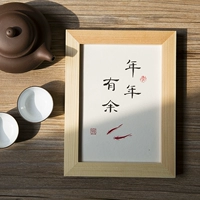 年年
有余